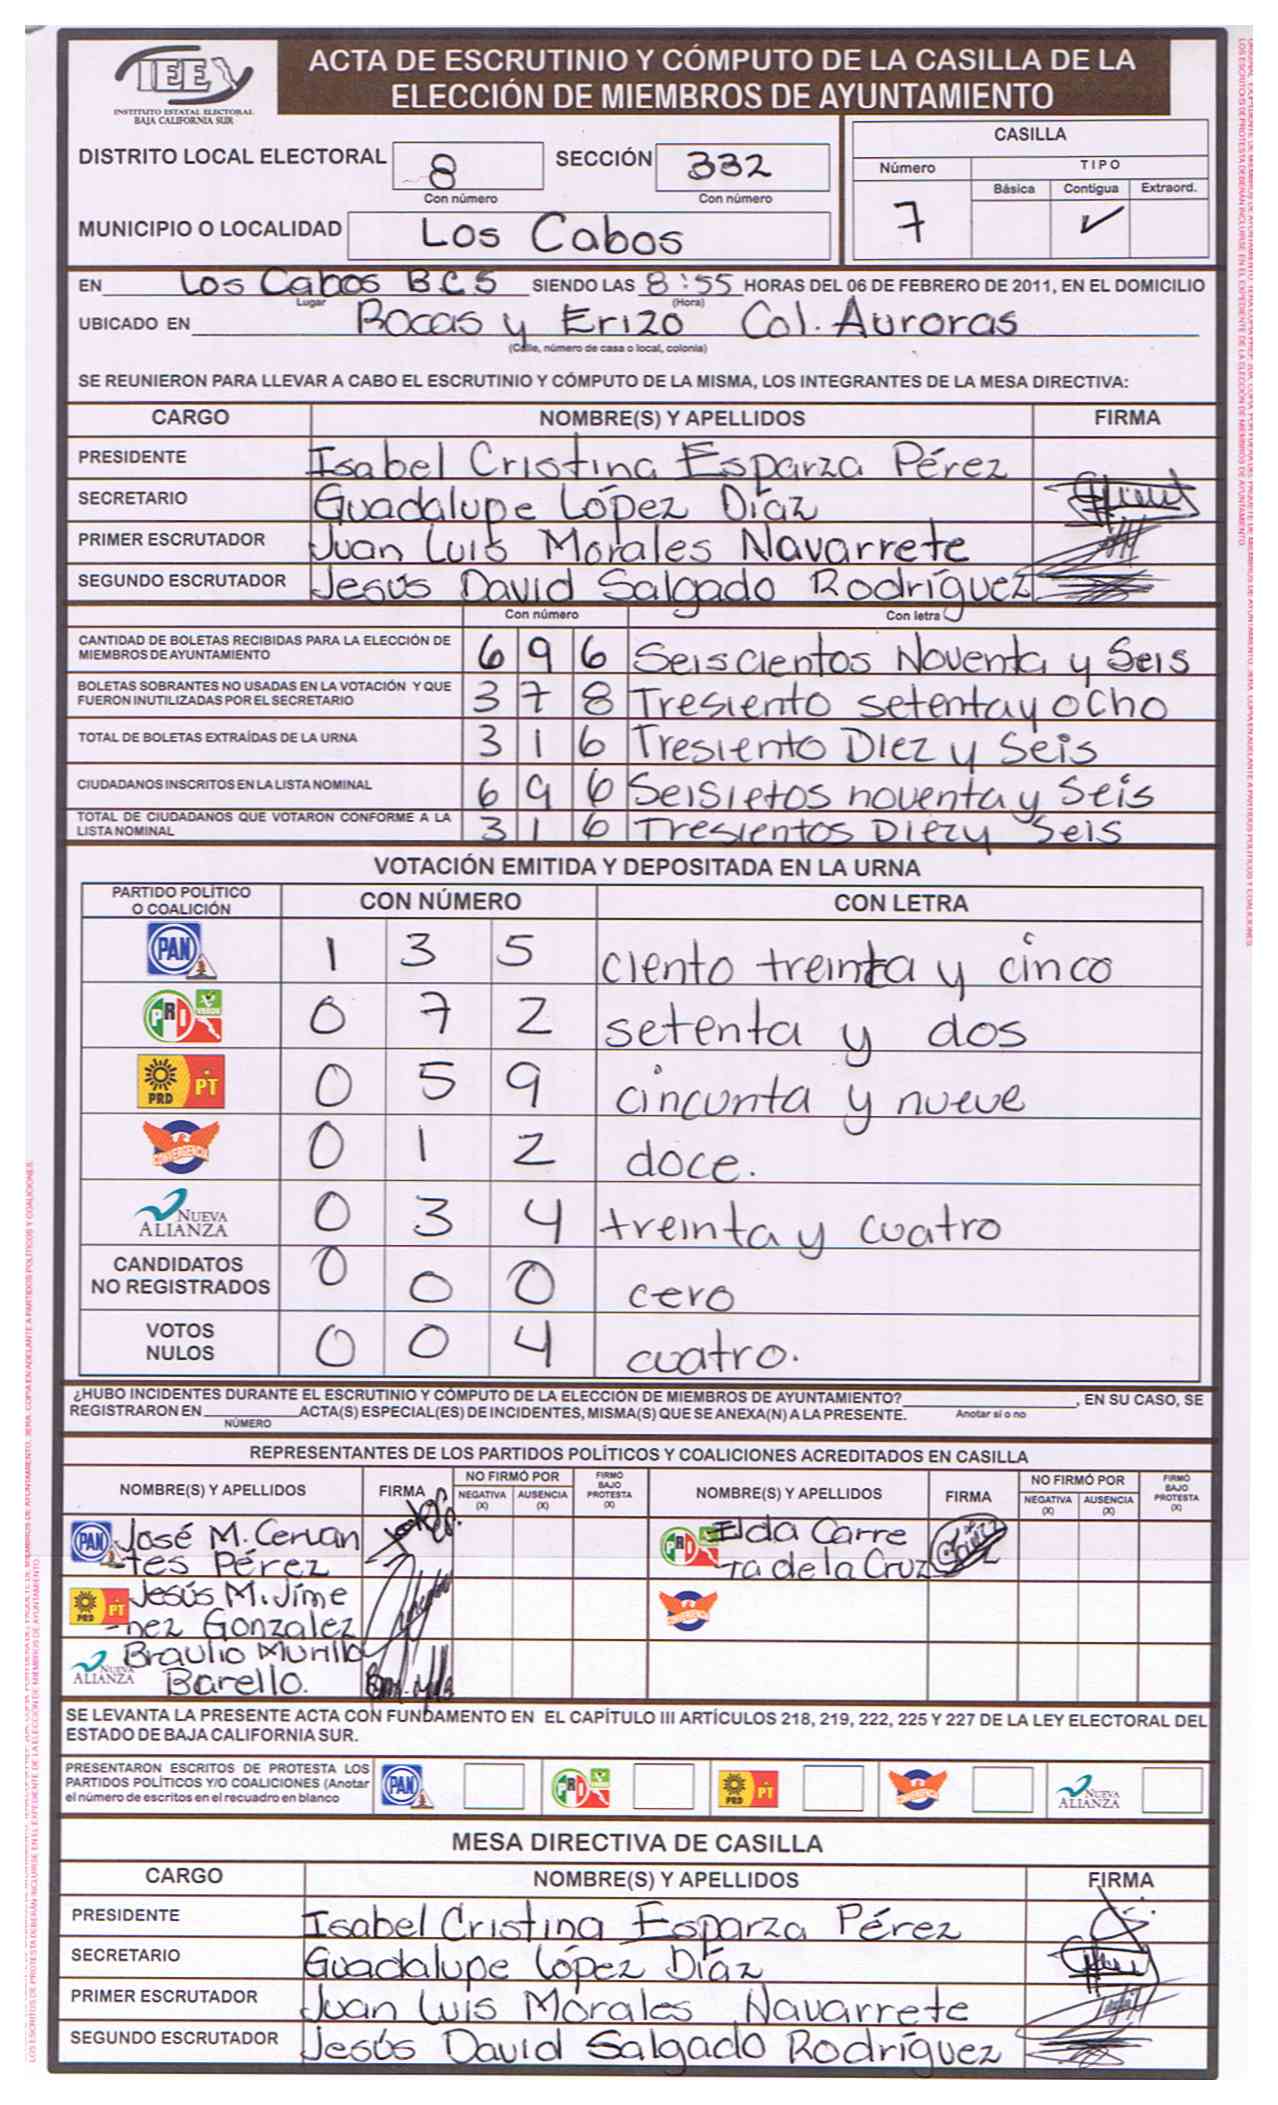 IEE
INSTITUTO ESTATAL ELECTORAL
BAJA CALIFORNIA SUR
ACTA DE ESCRUTINIO Y CÓMPUTO DE LA CASILLA DE LA
ELECCIÓN DE MIEMBROS DE AYUNTAMIENTO
DISTRITO LOCAL ELECTORAL 8 SECCIÓN 332
Con número Con número
MUNICIPIO O LOCALIDAD Los Cabos
CASILLA
Número TIPO
Básica Contigua Extraord.
7 ✓
EN Los Cabos BCS SIENDO LAS 8:55 HORAS DEL 06 DE FEBRERO DE 2011, EN EL DOMICILIO
Lugar (Hora)
UBICADO EN Rocas y Erizo Col. Auroras
(Calle, número de casa o local, colonia)
SE REUNIERON PARA LLEVAR A CABO EL ESCRUTINIO Y CÓMPUTO DE LA MISMA, LOS INTEGRANTES DE LA MESA DIRECTIVA:
CARGO NOMBRE(S) Y APELLIDOS FIRMA
PRESIDENTE Isabel Cristina Esparza Pérez
SECRETARIO Guadalupe López Díaz
PRIMER ESCRUTADOR Juan Luis Morales Navarrete
SEGUNDO ESCRUTADOR Jesús David Salgado Rodríguez
Con número Con letra
CANTIDAD DE BOLETAS RECIBIDAS PARA LA ELECCIÓN DE
MIEMBROS DE AYUNTAMIENTO 6 9 6 Seiscientos Noventa y Seis
BOLETAS SOBRANTES NO USADAS EN LA VOTACIÓN Y QUE
FUERON INUTILIZADAS POR EL SECRETARIO 3 7 8 Tresiento setenta y ocho
TOTAL DE BOLETAS EXTRAÍDAS DE LA URNA 3 1 6 Tresiento Diez y Seis
CIUDADANOS INSCRITOS EN LA LISTA NOMINAL 6 9 6 Seisietos noventa y Seis
TOTAL DE CIUDADANOS QUE VOTARON CONFORME A LA
LISTA NOMINAL 3 1 6 Tresientos Diez y Seis
VOTACIÓN EMITIDA Y DEPOSITADA EN LA URNA
PARTIDO POLÍTICO
O COALICIÓN CON NÚMERO CON LETRA
PAN 1 3 5 ciento treinta y cinco
PRI VERDE 0 7 2 setenta y dos
PRD PT 0 5 9 cincunta y nueve
CONVERGENCIA 0 1 2 doce.
NUEVA ALIANZA 0 3 4 treinta y cuatro
CANDIDATOS
NO REGISTRADOS 0 0 0 cero
VOTOS
NULOS 0 0 4 cuatro.
¿HUBO INCIDENTES DURANTE EL ESCRUTINIO Y CÓMPUTO DE LA ELECCIÓN DE MIEMBROS DE AYUNTAMIENTO? , EN SU CASO, SE
REGISTRARON EN ACTA(S) ESPECIAL(ES) DE INCIDENTES, MISMA(S) QUE SE ANEXA(N) A LA PRESENTE. Anotar sí o no
NÚMERO
REPRESENTANTES DE LOS PARTIDOS POLÍTICOS Y COALICIONES ACREDITADOS EN CASILLA
NOMBRE(S) Y APELLIDOS FIRMA NO FIRMÓ POR NEGATIVA (X) AUSENCIA (X) FIRMÓ BAJO PROTESTA (X) NOMBRE(S) Y APELLIDOS FIRMA NO FIRMÓ POR NEGATIVA (X) AUSENCIA (X) FIRMÓ BAJO PROTESTA (X)
PAN José M. Cervan PRI Elda Carre
tes Pérez ra de la Cruz
PRD PT Jesús M. Jíme CONVERGENCIA
nez Gonzalez
NUEVA ALIANZA Braulio Murillo
Barello.
SE LEVANTA LA PRESENTE ACTA CON FUNDAMENTO EN EL CAPÍTULO III ARTÍCULOS 218, 219, 222, 225 Y 227 DE LA LEY ELECTORAL DEL
ESTADO DE BAJA CALIFORNIA SUR.
PRESENTARON ESCRITOS DE PROTESTA LOS
PARTIDOS POLÍTICOS Y/O COALICIONES (Anotar
el número de escritos en el recuadro en blanco
PAN PRI VERDE PRD PT CONVERGENCIA NUEVA ALIANZA
MESA DIRECTIVA DE CASILLA
CARGO NOMBRE(S) Y APELLIDOS FIRMA
PRESIDENTE Isabel Cristina Esparza Pérez
SECRETARIO Guadalupe López Díaz
PRIMER ESCRUTADOR Juan Luis Morales Navarrete
SEGUNDO ESCRUTADOR Jesús David Salgado Rodríguez